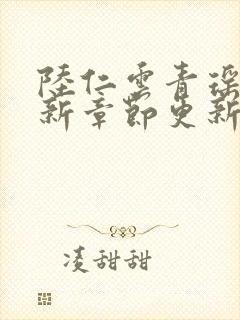 陸仁雲青瑤
新章節更新
凌甜甜